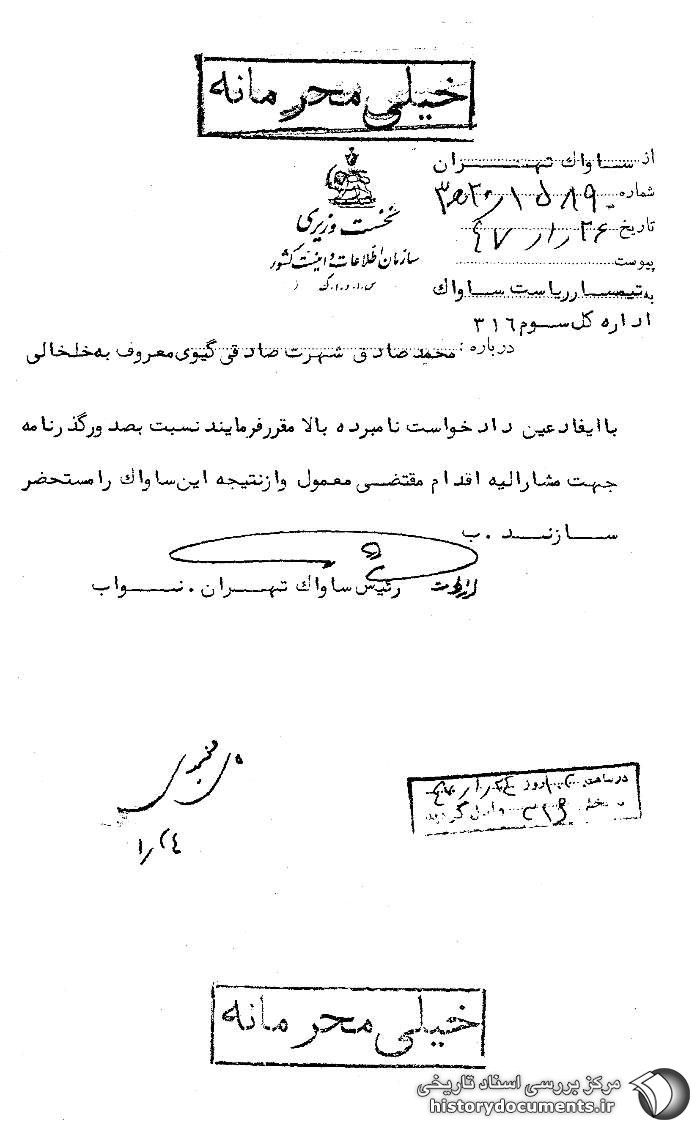 خیلی محرمانه
از ساواك تهران
شماره
تاریخ
پیوست
به تیمسار ریاست ساواك
اداره کل سوم ۳۱۶
نخست وزیری
سازمان اطلاعات و امنیت کشور
س.ا.و.ا.ک
درباره : محمد صادق شهرت صادقی گیوی معروف به خلخالی
با ایفاد عین دادخواست نامبرده بالا مقرر فرمایند نسبت بصدور گذرنامه
جهت مشارالیه اقدام مقتضی معمول و از نتیجه این ساواك را مستحضر
سازند . ب
رئیس ساواك تهران . نواب
در ساعت روز
بخش واصل گردید
خیلی محرمانه
مرکز بررسی اسناد تاریخی
historydocuments.ir